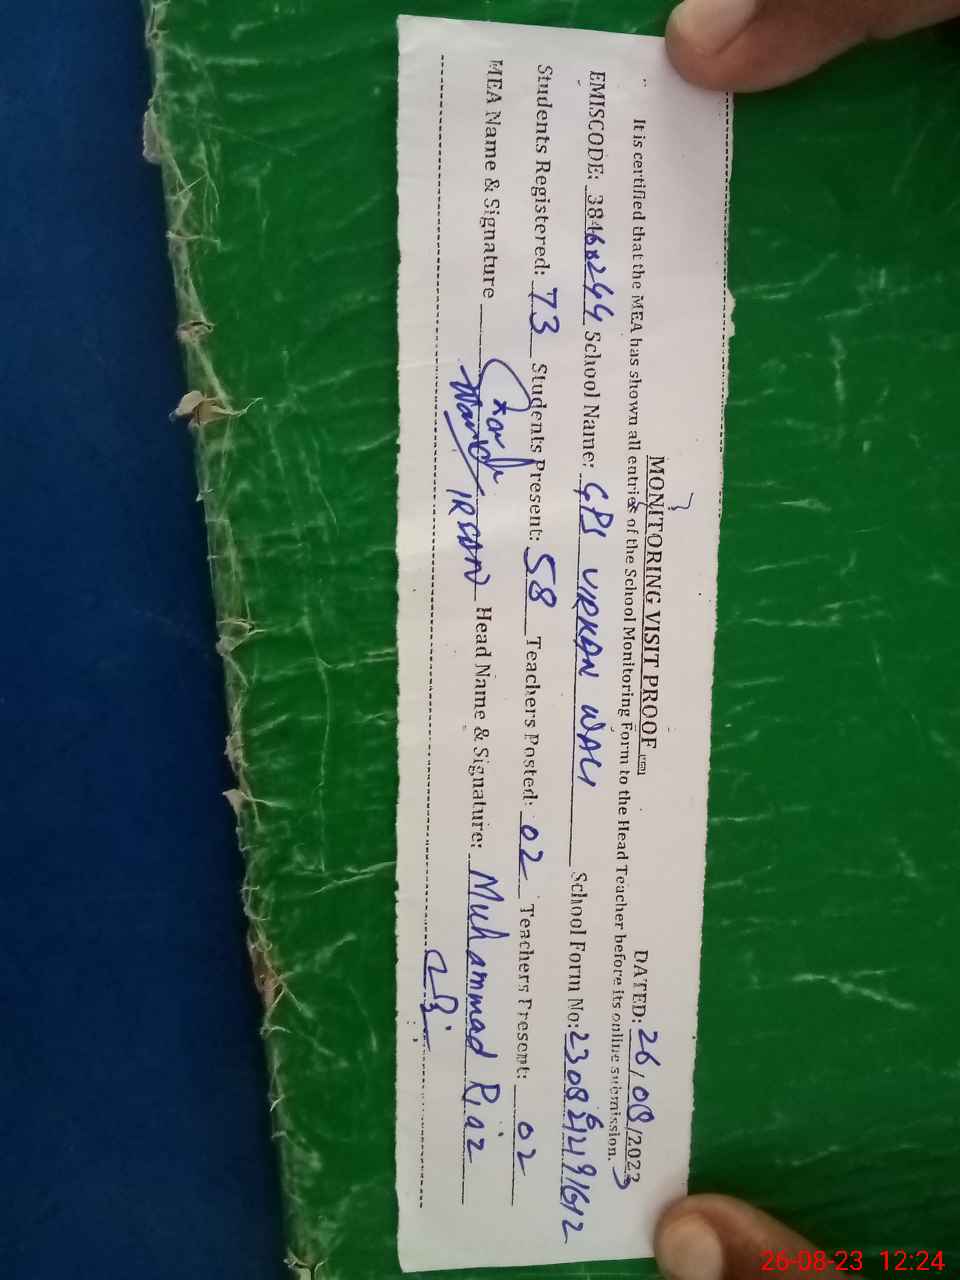 MONITORING VISIT PROOF
DATED: 26/08/2023
It is certified that the MEA has shown all entries of the School Monitoring Form to the Head Teacher before its online submission.
EMISCODE: School Name: GPS VIRKAN WALI School Form No:
Students Registered: 73 Students Present: 58 Teachers Posted: 02 Teachers Present: 02
MEA Name & Signature Head Name & Signature: Muhammad Riaz
26-08-23 12:24